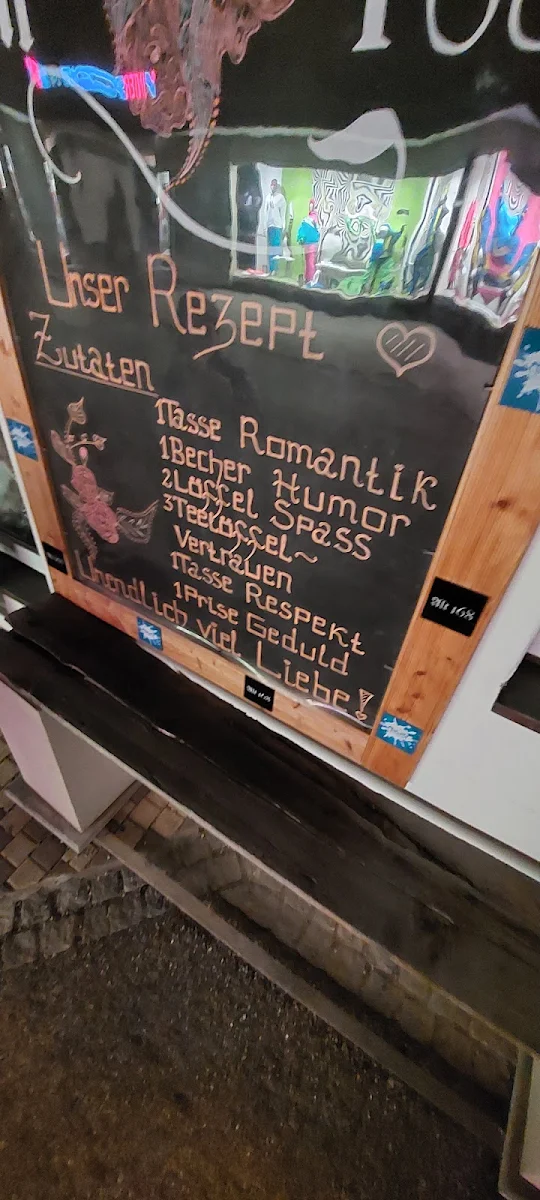 Unser Rezept
Zutaten
1Tasse Romantik
1Becher Humor
2Löffel Spass
3Teelöffel~
Vertrauen
1Tasse Respekt
1Prise Geduld
Unendlich viel Liebe!